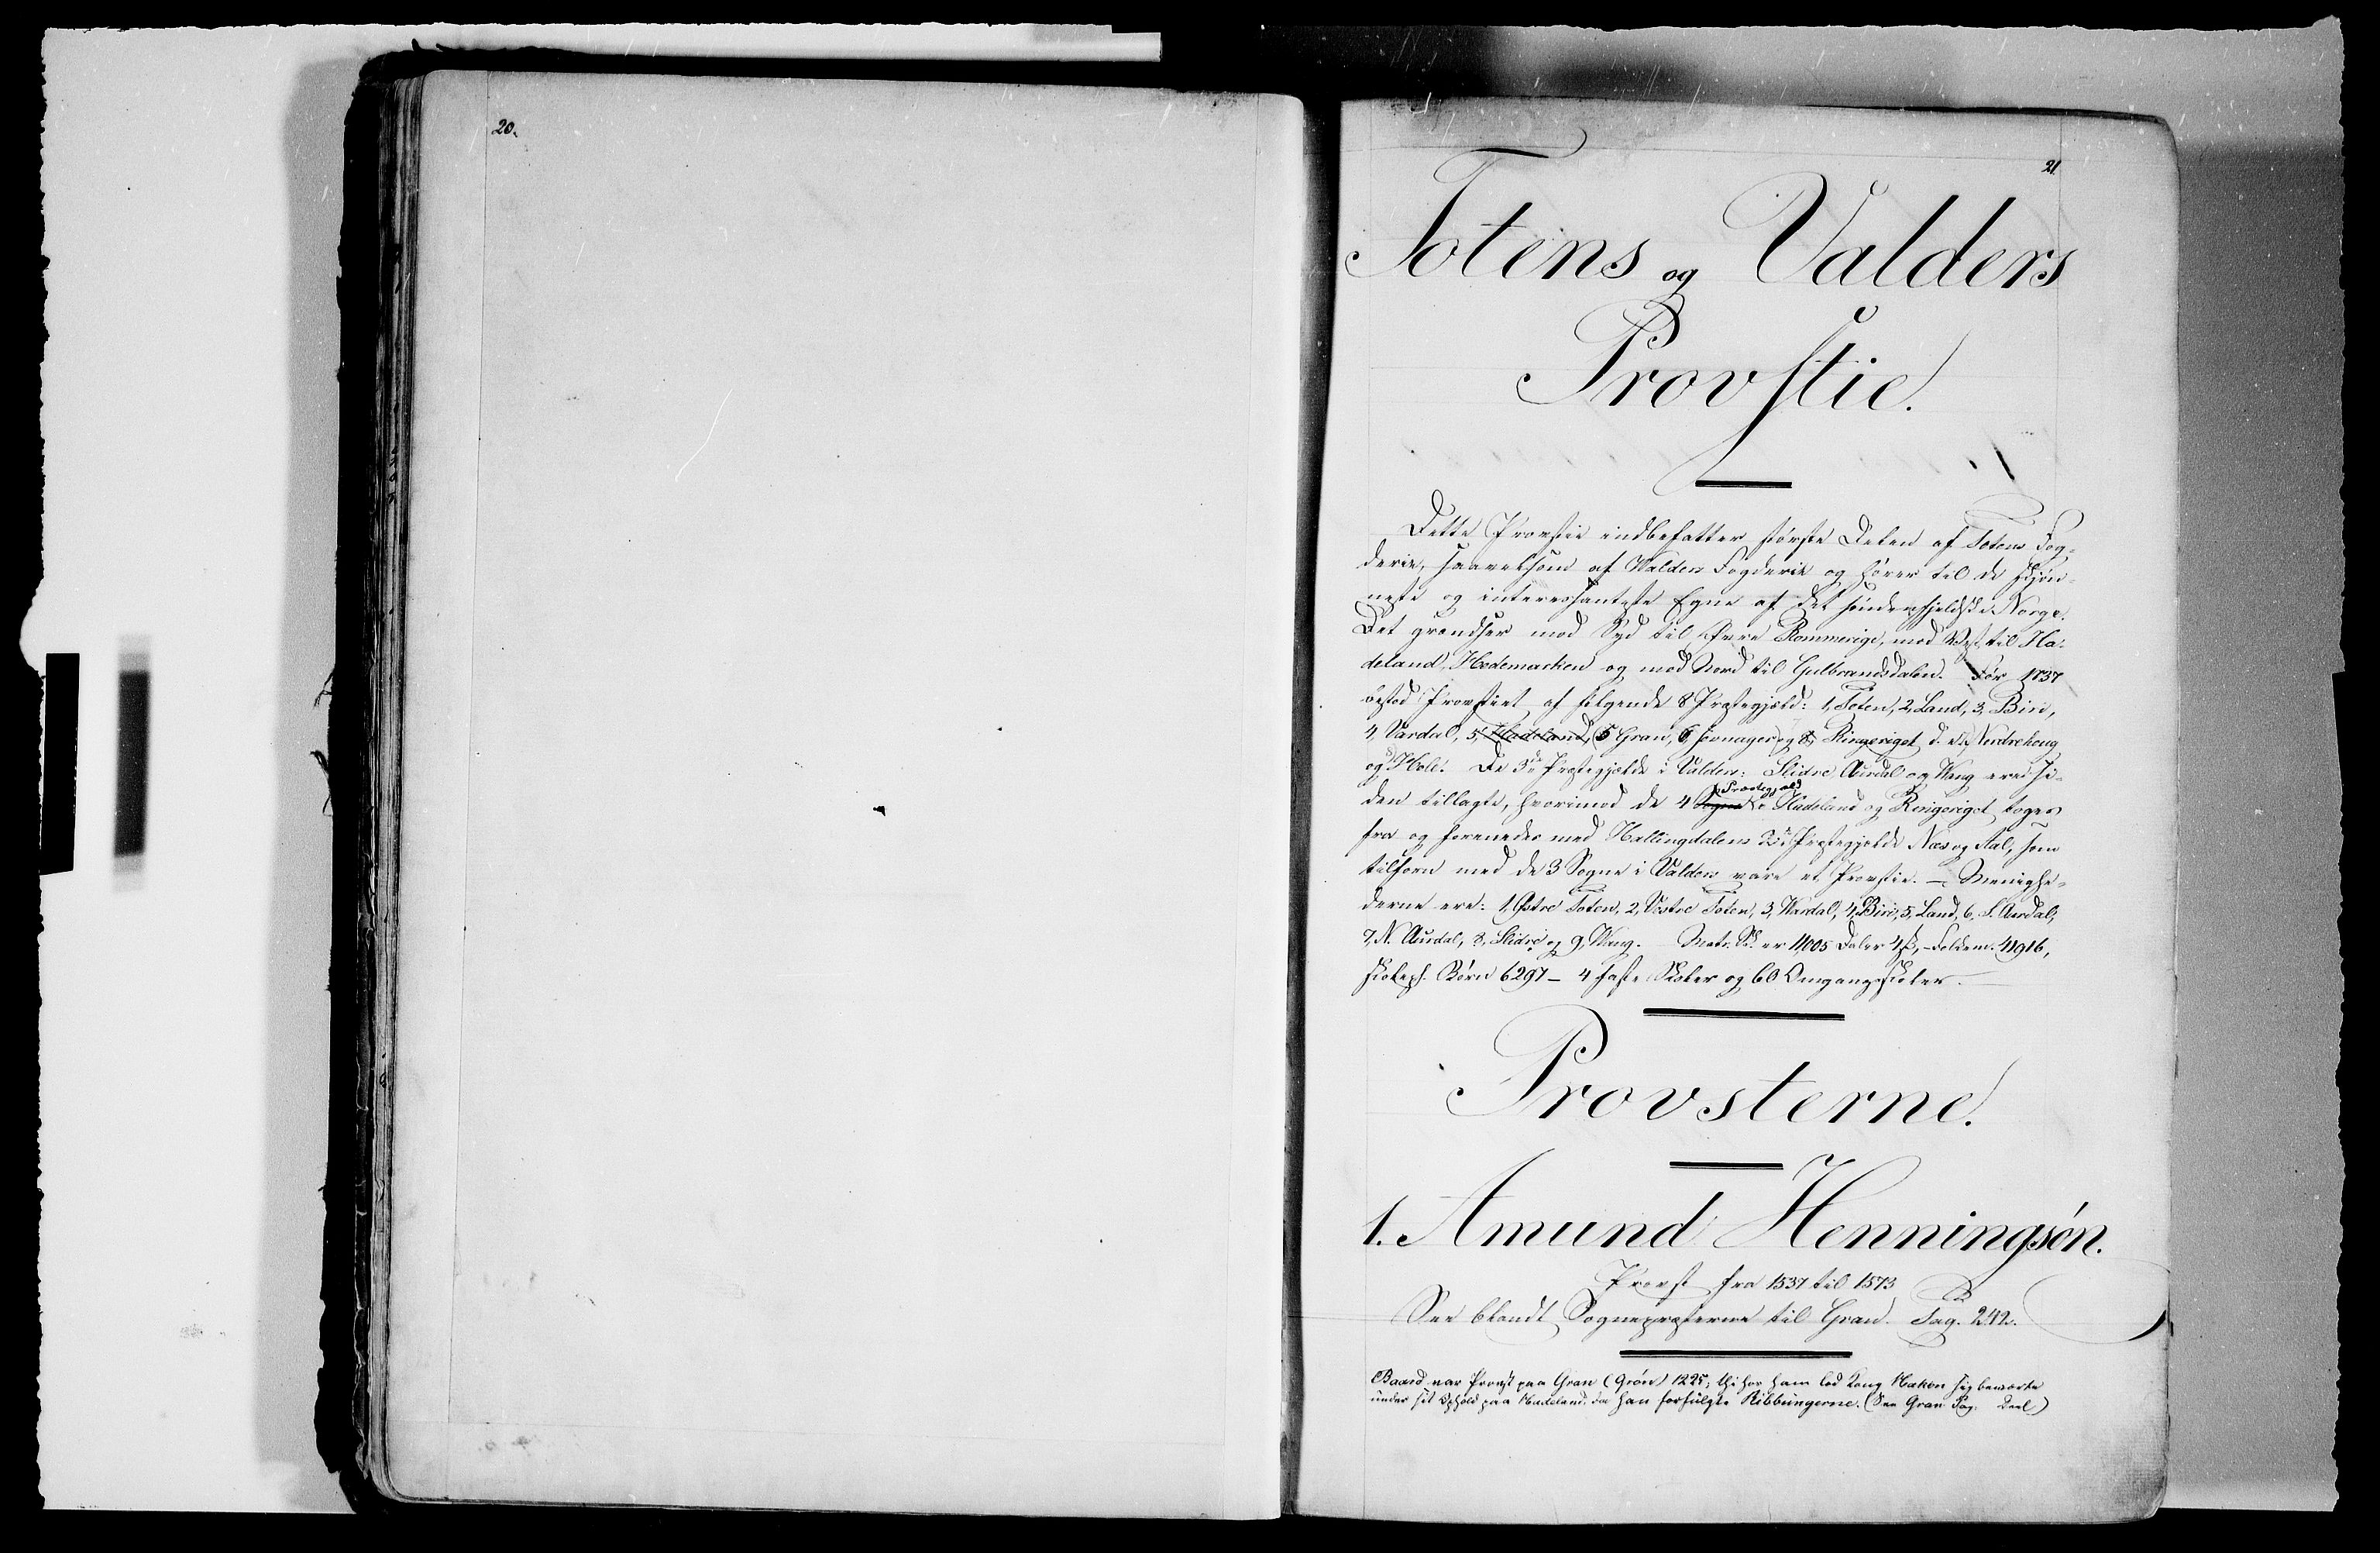 20.
21.
Totens og Valders
Provstie.
Dette Provstie indbefatter største Delen af Totens Fog-
derie, saavelsom af Valders Fogderie og hører til de skjøn-
neste og interessanteste Egne af det søndenfjeldske Norge.
Det grændser mod Syd til Øvre Rommerige, mod Vest til Ha-
deland, Hedemarken og mod Nord til Gulbrandsdalen. Før 1737
bestod Provstiet af følgende 8 Præstegjæld: 1, Toten, 2, Land, 3, Biri,
4, Vardal, 5, Hadeland, (5 Gran, 6, Jevnager) og Ringeriget d. e. Nordrehoug
og Hole. De 3de Præstegjælde i Valders: Slidre, Aurdal og Wang ere si-
den tillagte, hvorimod de 4 Sogne Præstegjæld i Hadeland og Ringeriget toges
fra og forenedes med Hallingdalens 2de Præstegjælde Næs og Aal, som
tilforn med de 3 Sogne i Valders vare et Provstie. – Menighe-
derne ere: 1, Østre Toten, 2, Vestre Toten, 3, Wardal, 4, Biri, 5, Land, 6, S. Aurdal,
7, N. Aurdal, 8, Slidre og 9, Wang. Matr. Sk. er 11005 Daler 4 ß, – Folkem. 41916,
skolepl. Børn 6297 – 4 faste Skoler og 60 Omgangsskoler.
Provsterne.
1. Amund Henningsøn.
Provst fra 1537 til 1573
See blandt Sognepræsterne til Gran. Pag. 242.
Baard var Provst paa Gran (Grön) 1225; thi hos ham lod Kong Hakon sig beværte
under sit Ophold paa Hadeland, da han forfulgte Ribbungerne. (See Gran Pag. Deel)